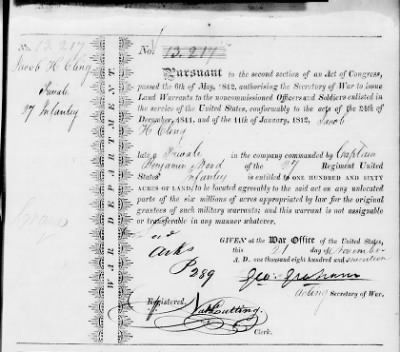 No. 13.217
Jacob H Cling
Private
27 Infantry
WAR DEPARTMENT
No. 13.217
Pursuant to the second section of an Act of Congress,
passed the 6th of May, 1812, authorising the Secretary of War to issue
Land Warrants to the noncommissioned Officers and Soldiers enlisted in
the service of the United States, conformably to the acts of the 24th of
December, 1811, and of the 11th of January, 1812, Jacob
H Cling
late a Private in the company commanded by Captain
Benjamin of the 27 Regiment United
States' Infantry is entitled to ONE HUNDRED AND SIXTY
ACRES OF LAND, to be located agreeably to the said act on any unlocated
parts of the six millions of acres appropriated by law for the original
grantees of such military warrants; and this warrant is not assignable
or transferable in any manner whatever.
GIVEN at the War Office of the United States,
this 21 day of November
A. D. one thousand eight hundred and seventeen
Arks
P 289
Geo: Graham
Acting Secretary of War.
Registered,
Nath Cutting
Clerk.